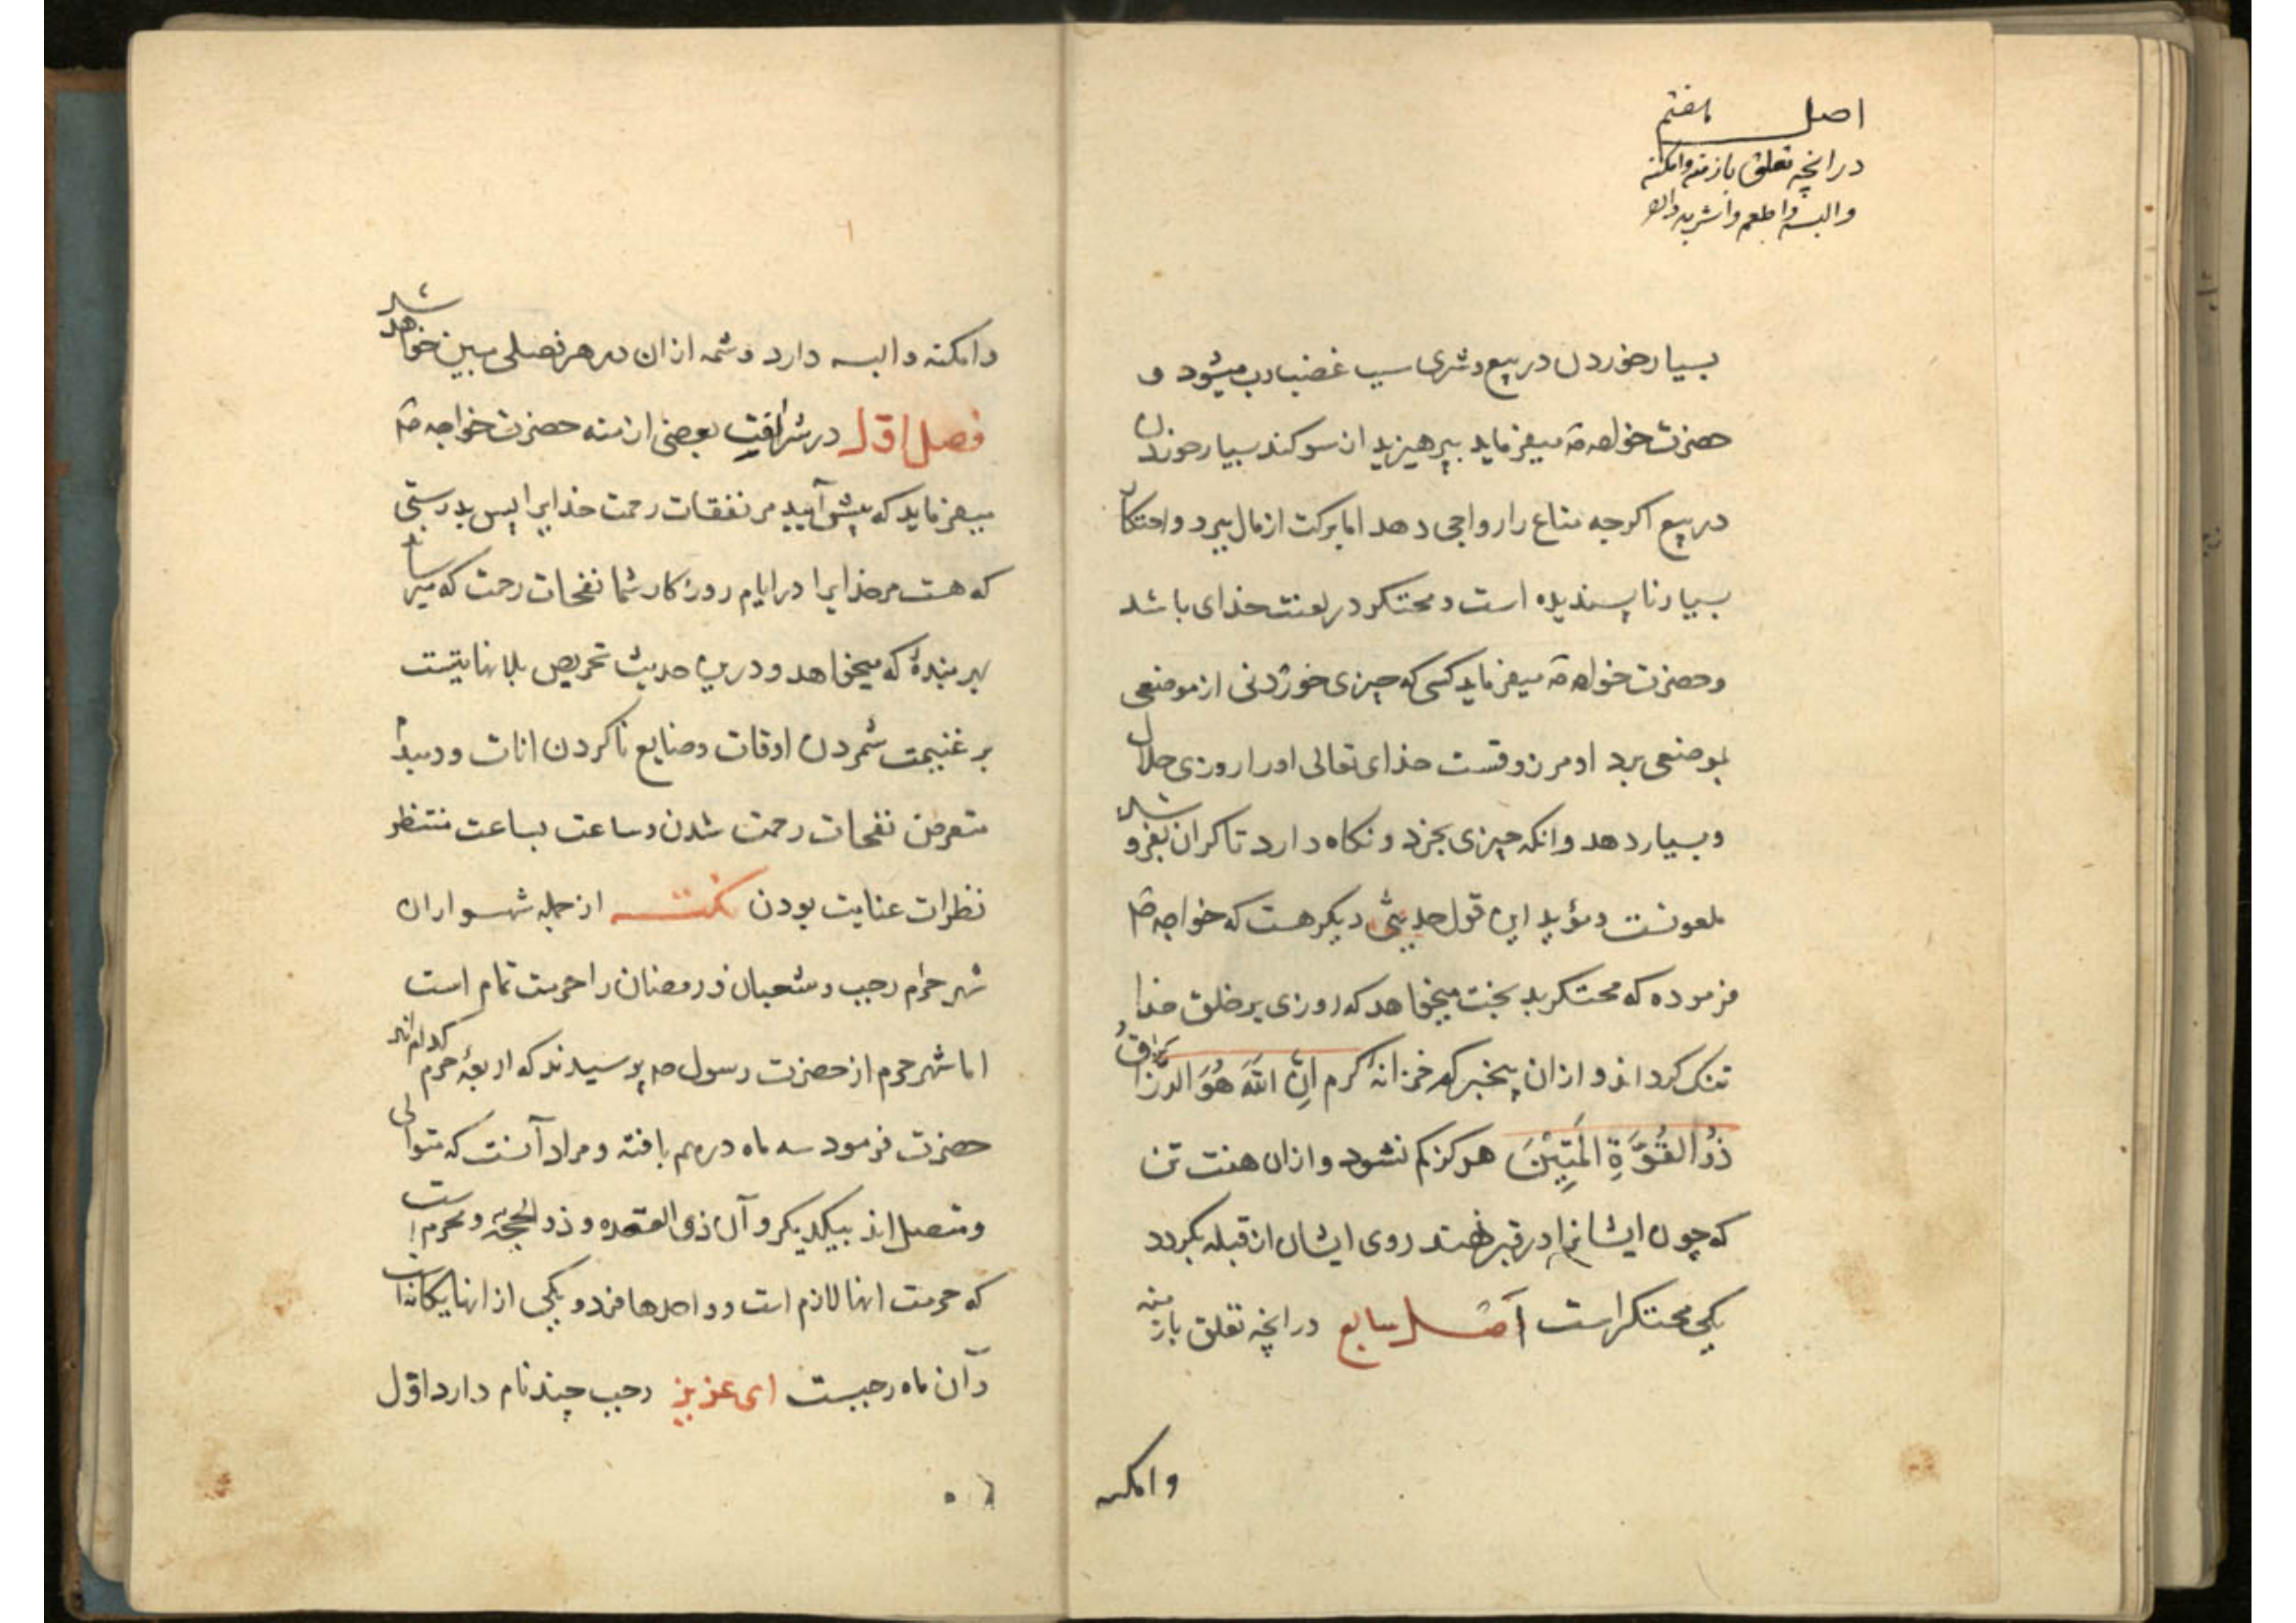 اصل هفتم
در انچه تعلق بازمنه وامکنه
والبسه واطعمه واشربه دارد
بسیار خوردن در بیع وشری سبب غضب رب میشود و
حضرت خواجه صه میفرماید بپرهیزید از سوکند بسیار خوردن
در بیع اکرچه متاع را رواجی دهد اما برکت از مال ببرد واحتکار
بسیار ناپسندیده است ومحتکر در لعنت خدای باشد
وحضرت خواجه صه میفرماید کسی که چیزی خوردنی از موضعی
بموضعی برد او مرزوقست خدای تعالی اورا روزی حلال
وبسیار دهد وانکه چیزی بخرد ونکاه دارد تا کران بفروشد
ملعونست ومؤید این قول حدیثی دیکر هست که خواجه صه
فرموده که محتکر بدبخت میخواهد که روزی بر خلق خدا
تنک کرداند و از ان بیخبر که خزانهٔ کرم اِنَّ اللّٰهَ هُوَ الرَّزَّاقُ
ذُو الْقُوَّةِ الْمَتِیْنَ هرکز کم نشود و از ان هفت تن
که چون ایشانرا در قبر نهند روی ایشان از قبله بکردد
یکی محتکر است اَصل سابع در انچه تعلق بازمنه
وامکنه
وامکنه والبسه دارد وشمه از ان در هر فصلی مبین خواهد شد
فصل اوّل در شرافت بعضی ازمنه حضرت خواجه صه
میفرماید که پیش آیید مر نفقات رحمت خدایرا پس بدرستی
که هست مر خدایرا در ایام روزکار شما نفحات رحمت که میرساند
بهر بندهٔ که میخواهد ودرین حدیث تحریص بلا نهایتست
بر غنیمت شمردن اوقات وضایع ناکردن انات و
متعرض نفحات رحمت شدن وساعت بساعت منتظر
نظرات عنایت بودن نکته از جمله شهسواران
شهر حرام رجب وشعبان ورمضان را حرمت تمام است
اما شهر حرم از حضرت رسول صه پرسیدند که اربعهٔ حرم کدام اند
حضرت فرمود سه ماه درهم بافته ومراد آنست که متوالی
ومتصل اند بیکدیکر و آن ذی القعده وذو الحجة ومحرم است
که حرمت انها لازم است وواحدها فرد ویکی از انها یکانه است
وآن ماه رجبست ای عزیز رجب چند نام دارد اوّل